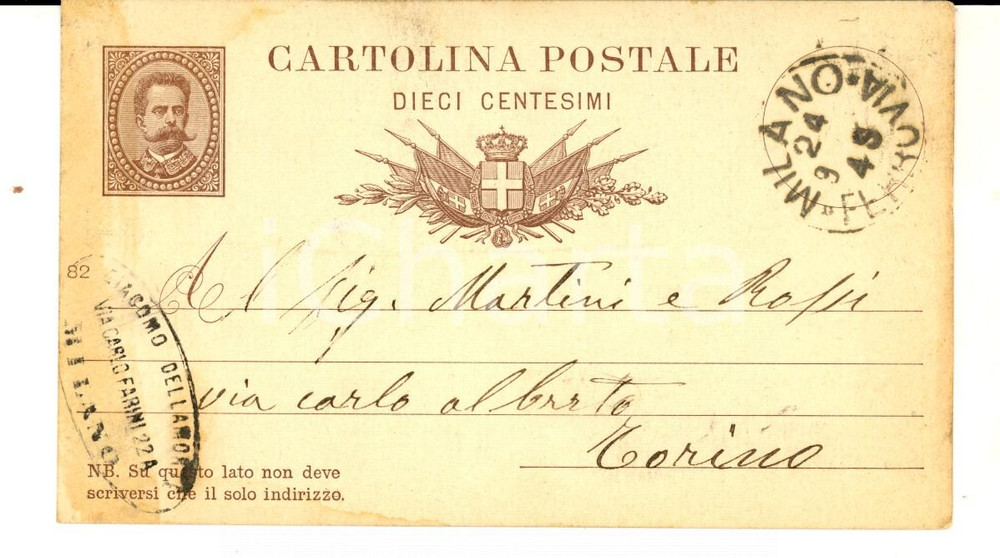 CARTOLINA POSTALE
DIECI CENTESIMI
MILANO
FERROVIA
24
9
iCharta
Al Sig. Martini e Rossi
via carlo alberto
Torino
82
GIACOMO DELLAMORE
VIA CARLO FARINI 22A
MILANO
NB. Su questo lato non deve
scriversi che il solo indirizzo.